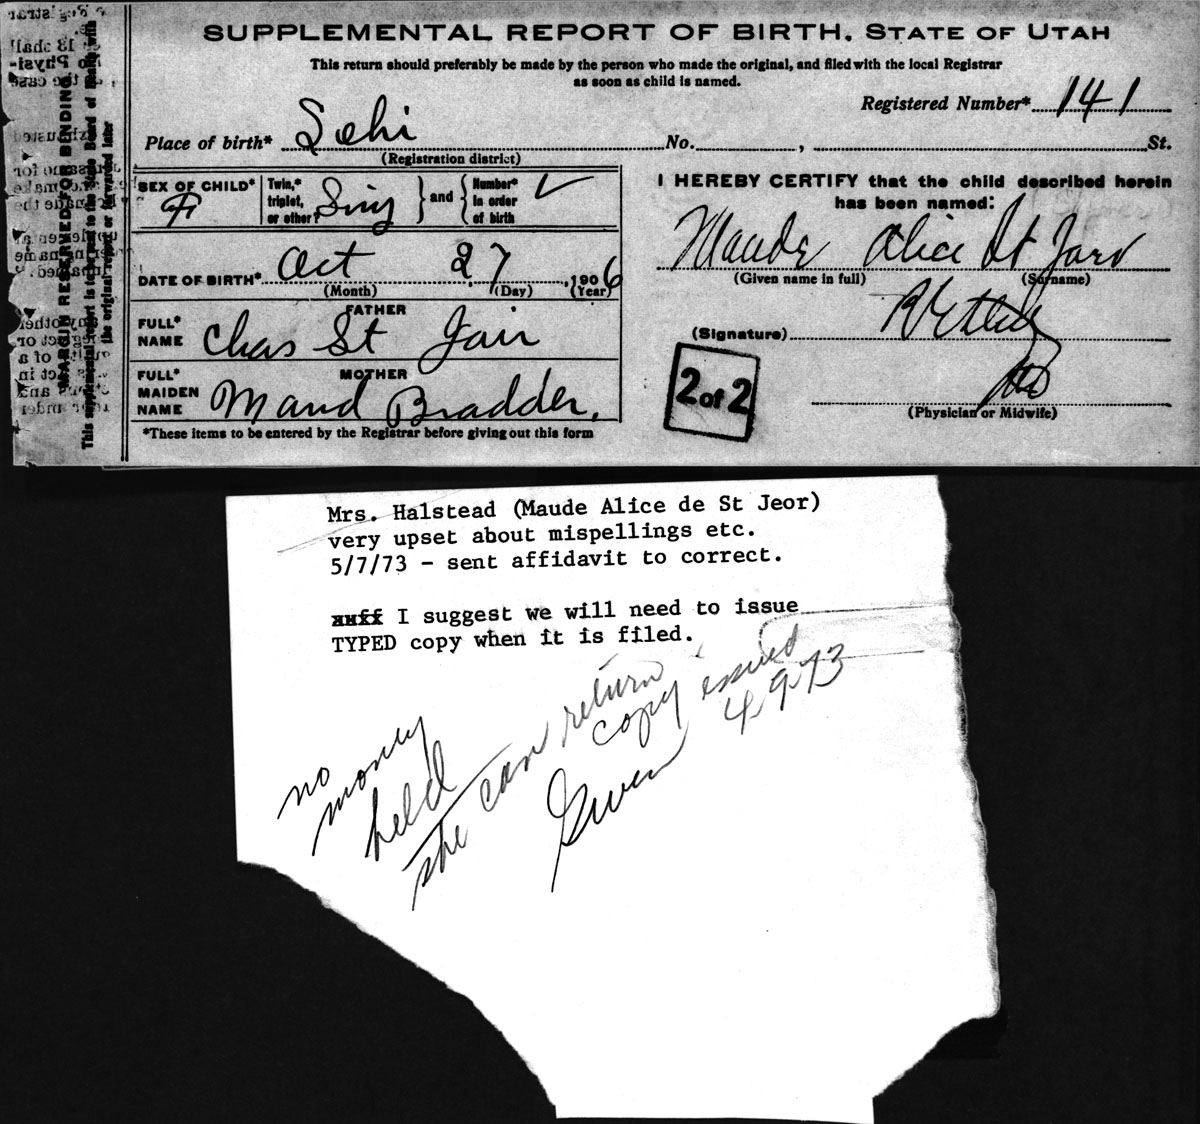 SUPPLEMENTAL REPORT OF BIRTH. STATE OF UTAH
This return should preferably be made by the person who made the original, and filed with the local Registrar
as soon as child is named.
Registered Number* 141
Place of birth* Lehi No. , St.
(Registration district)
SEX OF CHILD* F
Twin,* triplet, or other? Sing } and { Number* in order of birth
DATE OF BIRTH* Oct 27, 1906
(Month) (Day) (Year)
FATHER
FULL* NAME Chas St Jair
MOTHER
FULL* MAIDEN NAME Maud Bradder.
*These items to be entered by the Registrar before giving out this form
I HEREBY CERTIFY that the child described herein
has been named:
Maude Alice St Jarv
(Given name in full) (Surname)
(Signature)
MD
(Physician or Midwife)
2 of 2
MARGIN RESERVED FOR BENDING.
This supplemental report is to be sent to the State Board of Health with
the original report or forwarded later
Mrs. Halstead (Maude Alice de St Jeor)
very upset about mispellings etc.
5/7/73 - sent affidavit to correct.
I suggest we will need to issue
TYPED copy when it is filed.
no
money
held
she can return
copy issued
4-9-73
Gwen